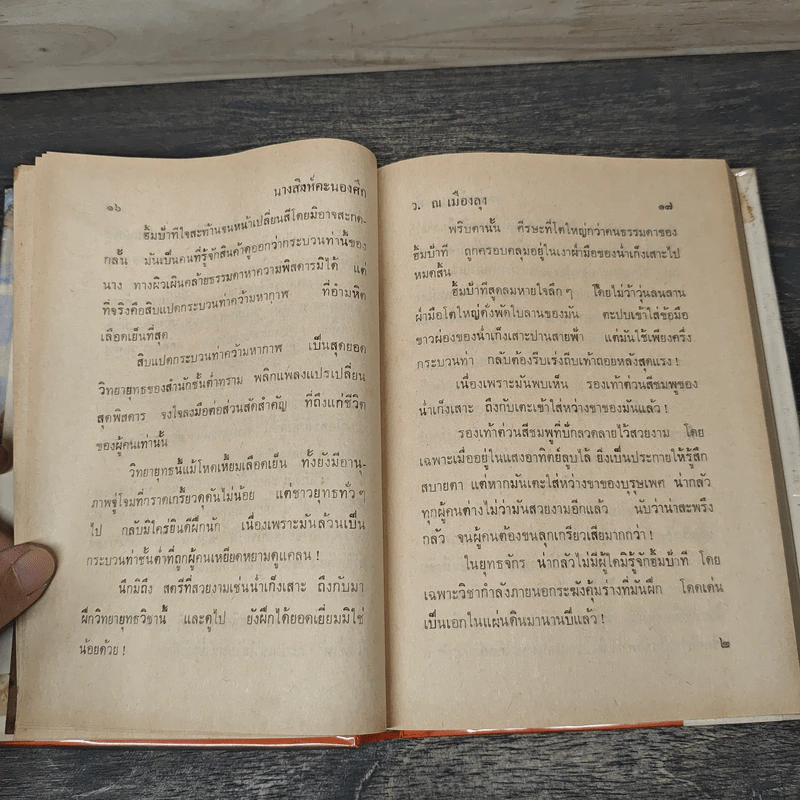 นางสิงห์คะนองศึก
๑๖
ฮ้มบ้าทีใจสะท้านจนหน้าเปลี่ยนสีโดยมิอาจสะกด-
กลั้น มันเป็นคนที่รู้จักสินค้าดูออกว่ากระบวนท่านี้ของ
นาง ทางผิวเผินคล้ายธรรมดาหาความพิสดารมิได้ แต่
ที่จริงคือสิบแปดกระบวนท่าคว้ามหากาฬ ที่อำมหิต
เลือดเย็นที่สุด
สิบแปดกระบวนท่าคว้ามหากาฬ เป็นสุดยอด
วิทยายุทธของสำนักชั้นต่ำทราม พลิกแพลงแปรเปลี่ยน
สุดพิสดาร จงใจลงมือต่อส่วนสัดสำคัญ ที่ถึงแก่ชีวิต
ของผู้คนเท่านั้น
วิทยายุทธนี้แม้โหดเหี้ยมเลือดเย็น ทั้งยังมีอานุ-
ภาพจู่โจมที่กราดเกรี้ยวดุดันไม่น้อย แต่ชาวยุทธทั่วๆ
ไป กลับมิใคร่ยินดีฝึกนัก เนื่องเพราะมันล้วนเป็น
กระบวนท่าชั้นต่ำที่ถูกผู้คนเหยียดหยามดูแคลน !
นึกมิถึง สตรีที่สวยงามเช่นน่ำเก็งเสาะ ถึงกับมา
ฝึกวิทยายุทธวิชานี้ และดูไป ยังฝึกได้ยอดเยี่ยมมิใช่
น้อยด้วย !
ว. ณ เมืองลุง
๑๗
พริบตานั้น ศีรษะที่โตใหญ่กว่าคนธรรมดาของ
ฮ้มบ้าที ถูกครอบคลุมอยู่ในเงาฝ่ามือของน่ำเก็งเสาะไป
หมดสิ้น
ฮ้มบ้าทีสูดลมหายใจลึกๆ โดยไม่ว้าวุ่นลนลาน
ฝ่ามือโตใหญ่ดั่งพัดใบลานของมัน ตะปบเข้าใส่ข้อมือ
ขาวผ่องของน่ำเก็งเสาะปานสายฟ้า แต่มันใช้เพียงครึ่ง
กระบวนท่า กลับต้องรีบเร่งถีบเท้าถอยหลังสุดแรง !
เนื่องเพราะมันพบเห็น รองเท้าด่วนสีชมพูของ
น่ำเก็งเสาะ ถึงกับเตะเข้าใส่หว่างขาของมันแล้ว !
รองเท้าด่วนสีชมพูที่ปักลวดลายไว้สวยงาม โดย
เฉพาะเมื่ออยู่ในแสงอาทิตย์ลูบไล้ ยิ่งเป็นประกายให้รู้สึก
สบายตา แต่หากมันเตะใส่หว่างขาของบุรุษเพศ น่ากลัว
ทุกผู้คนต่างไม่ว่ามันสวยงามอีกแล้ว นับว่าน่าสะพรึง
กลัว จนผู้คนต้องขนลุกเกรียวเสียมากกว่า !
ในยุทธจักร น่ากลัวไม่มีผู้ใดมิรู้จักฮ้มบ้าที โดย
เฉพาะวิชากำลังภายนอกระฆังคุ้มร่างที่มันฝึก โดดเด่น
เป็นเอกในแผ่นดินมานานปีแล้ว !
๒